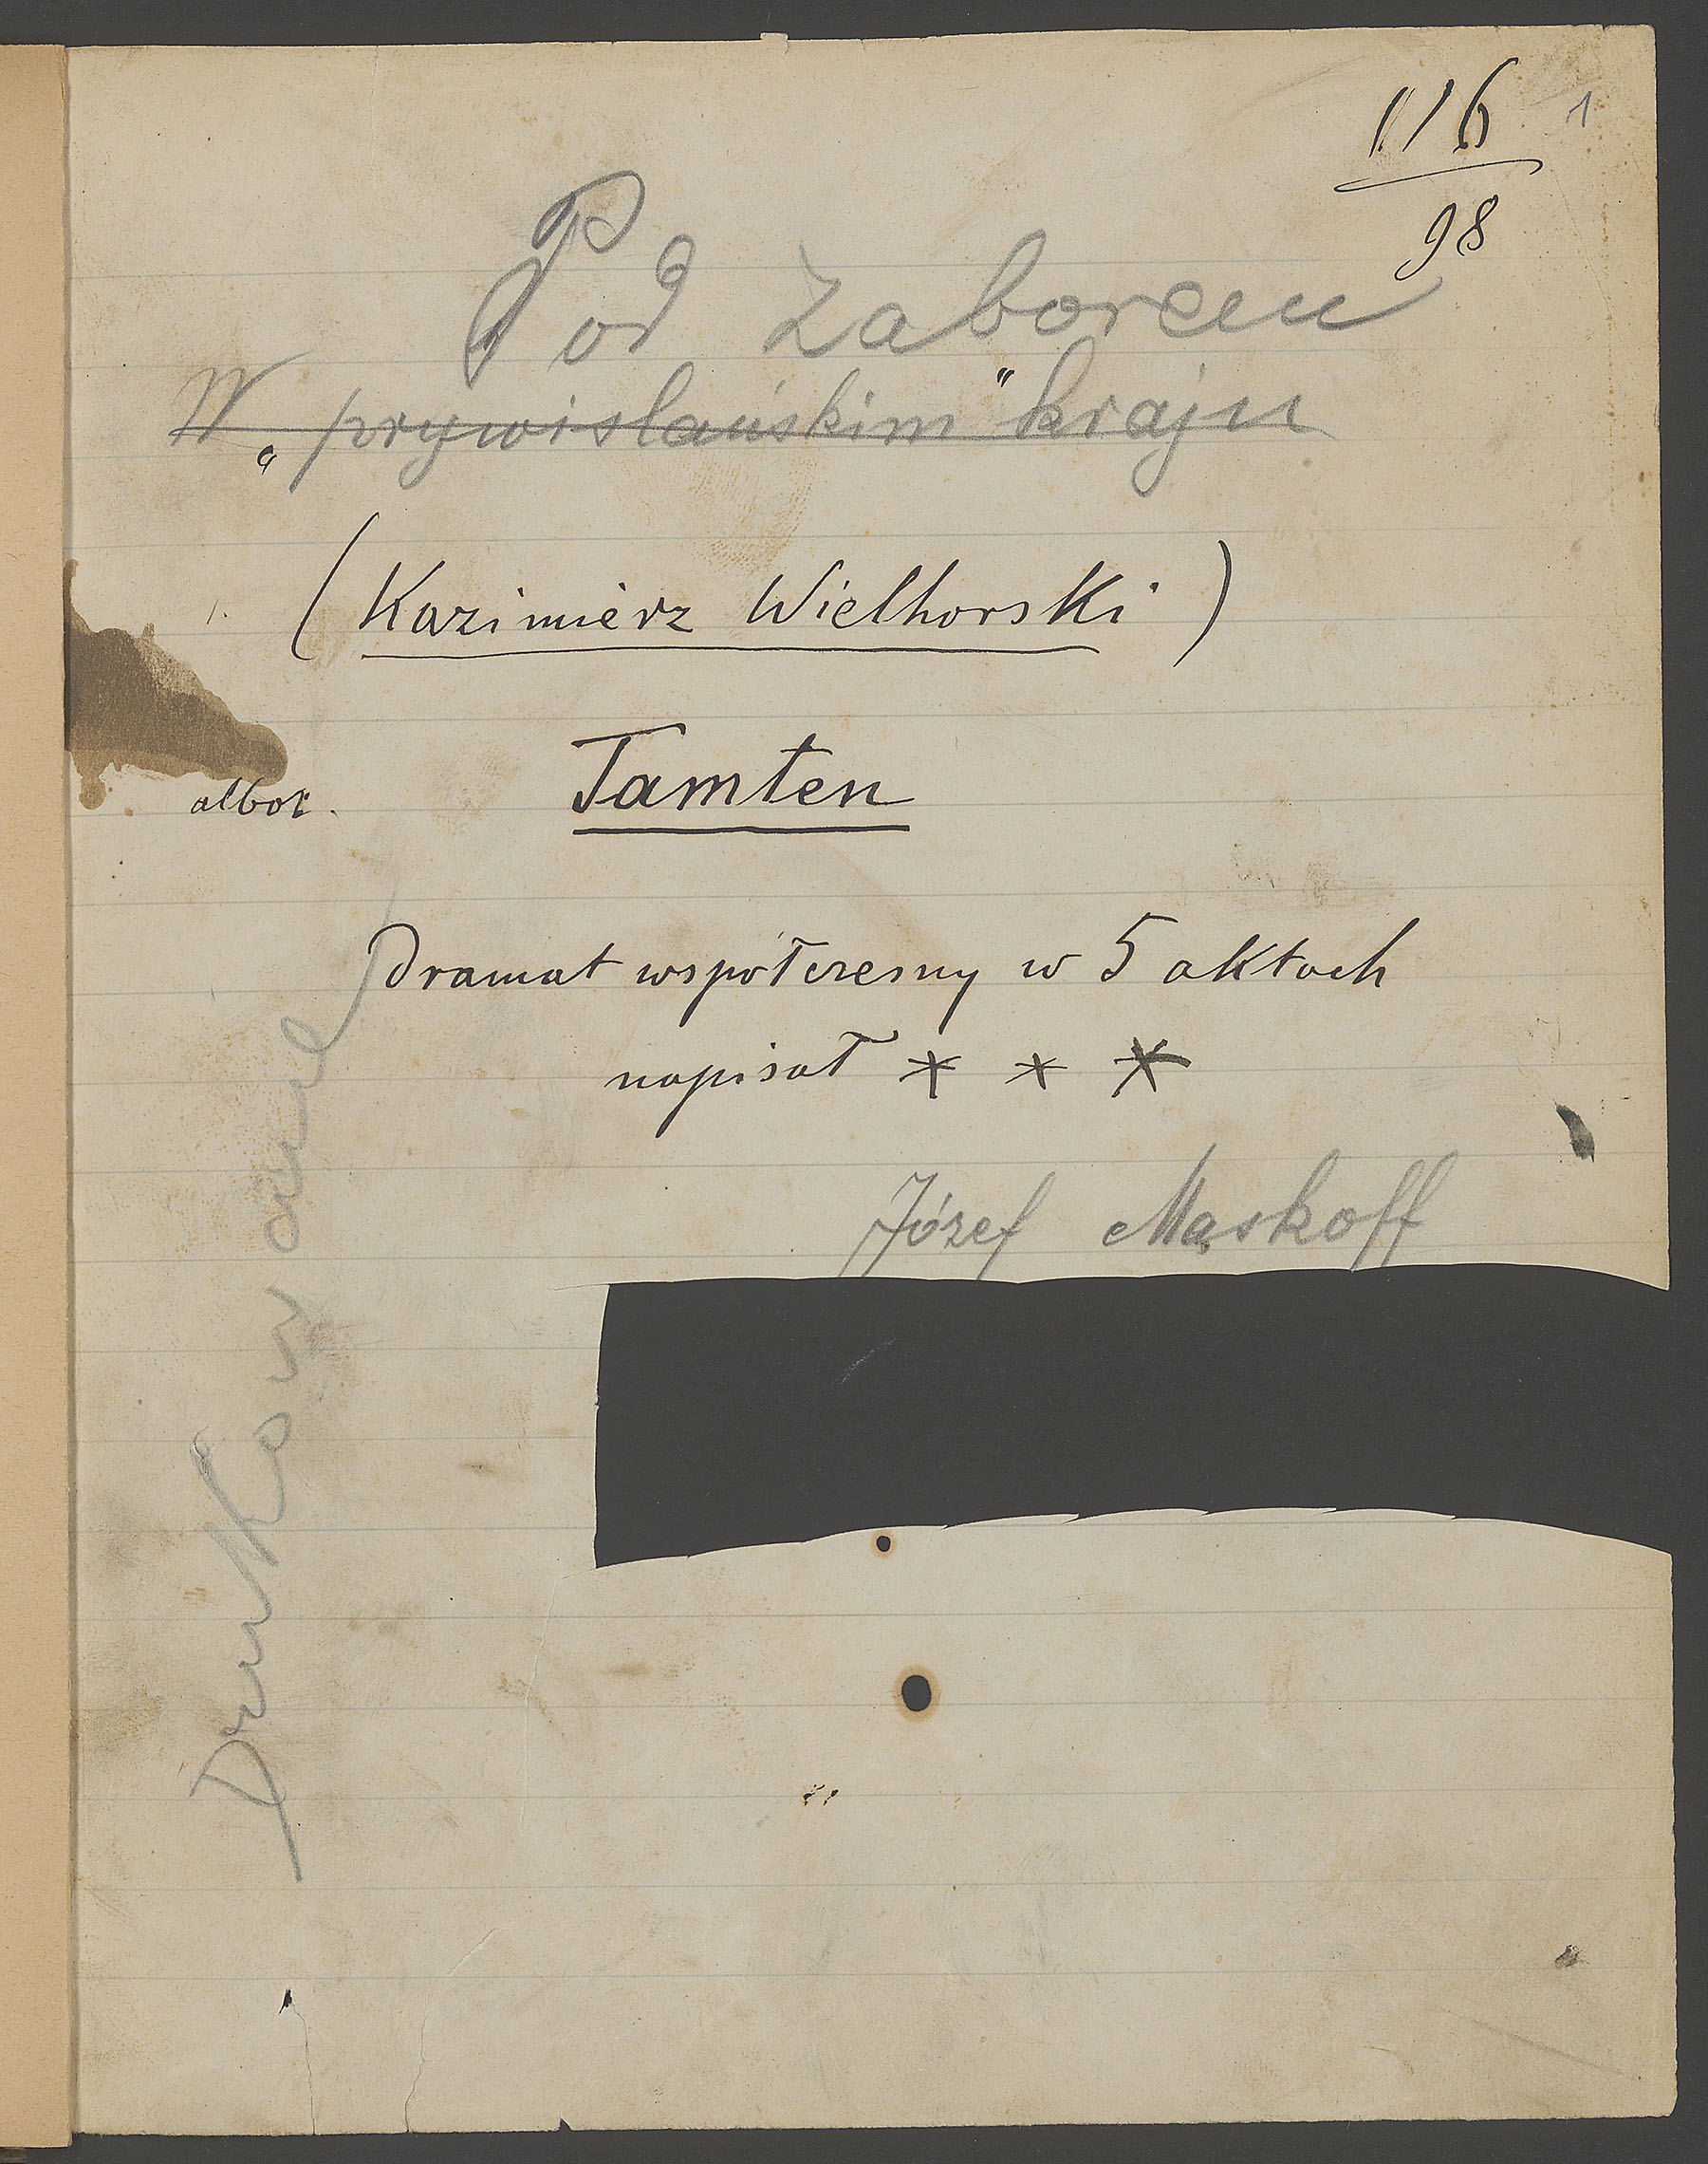 116 1
98
Pod zaborem
W „prywislańskim" kraju
(Kazimierz Wielhorski)
albo: Tamten
Dramat współczesny w 5 aktach
napisał * * *
Józef Maskoff
Drukowane